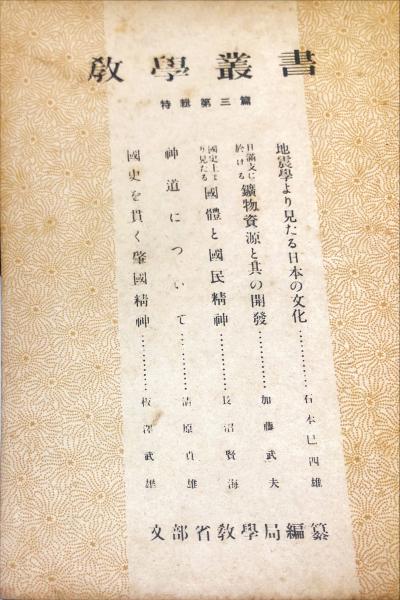 教學叢書
特輯第三篇
地震學より見たる日本の文化…………石本巳四雄
日滿支に於ける鑛物資源と其の開發…………加藤武夫
國史上より見たる國體と國民精神…………長沼賢海
神道について…………清原貞雄
國史を貫く肇國精神…………板澤武雄
文部省敎學局編纂